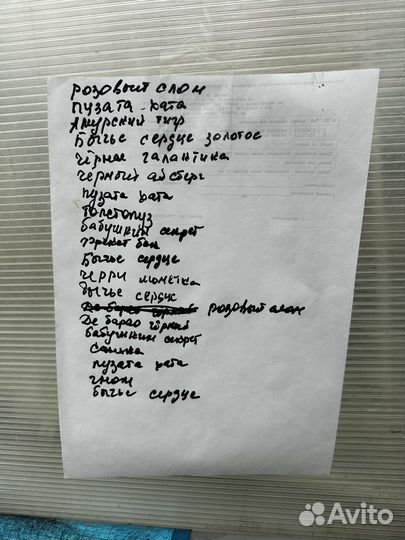 розовый слон
пузата хата
Амурский тигр
Бычье сердце золотое
чёрное галантика
черный айсберг
пузата хата
толстопуз
бабушкин секрет
Бычье сердце
черри
бычье сердце
Де барао розовый слон
Де барао чёрный
бабушкин секрет
санька
пузата хата
гном
бычье сердце
Avito